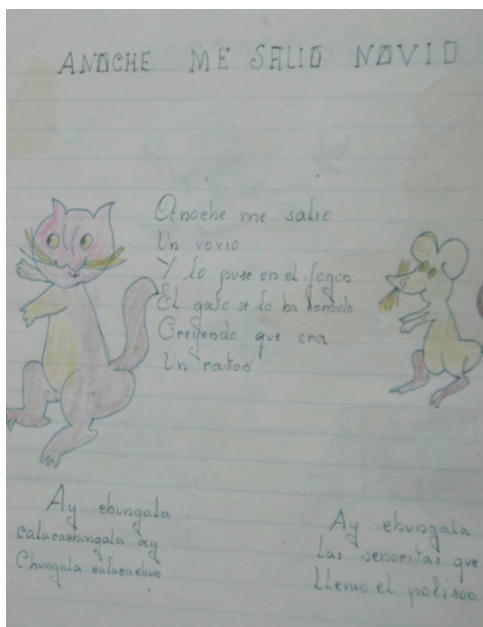 ANOCHE ME SALIO NOVIO
Anoche me salio
Un vovio
Y lo puse en el fogon
El gato se lo ha comido
Creyendo que era
Un raton
Ay chungala
calacachungala ay
Chungala calacachun
Ay chungala
Las señoritas que
LLevan el polison